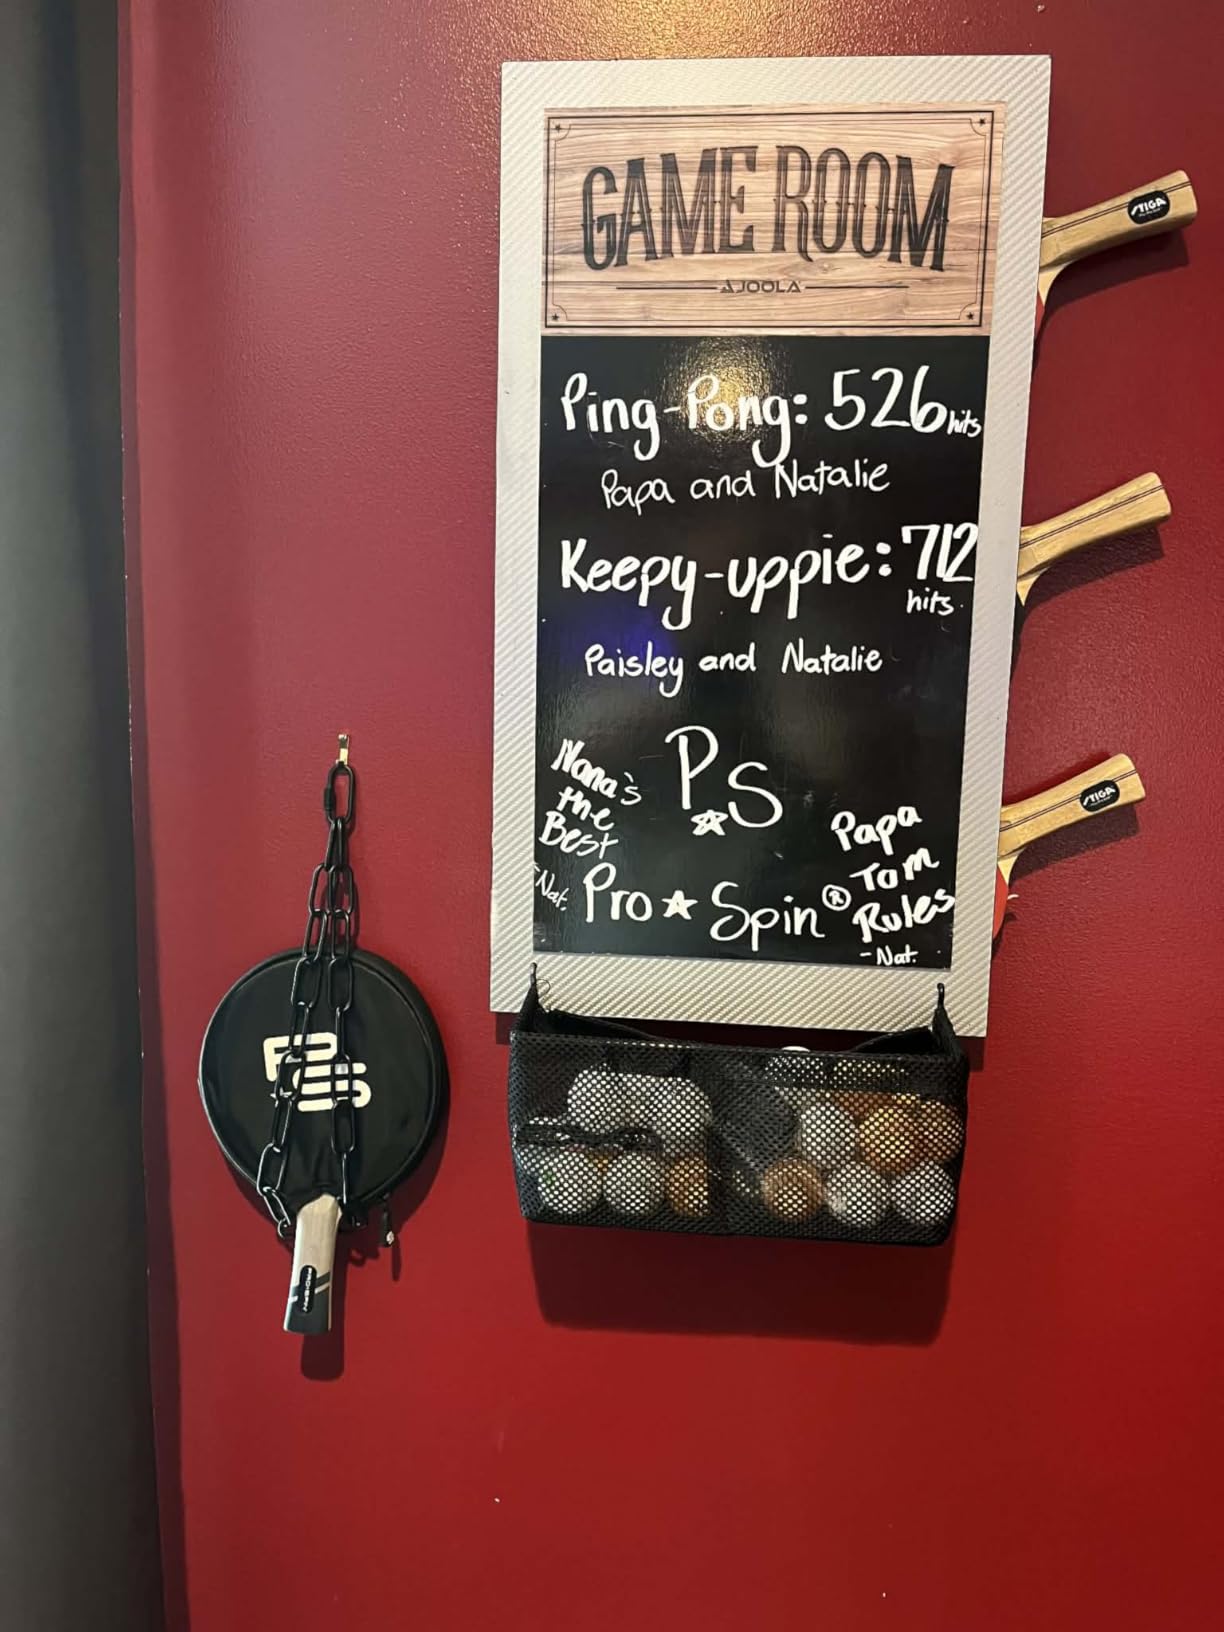 GAME ROOM
AJOOLA
STIGA
Ping-Pong: 526 hits
Papa and Natalie
Keepy-uppie: 712
hits.
Paisley and Natalie
P.S
Nana's
the
Best
-Nat.
Pro ★ Spin®
Papa
Tom
Rules
-Nat.
STIGA
PS